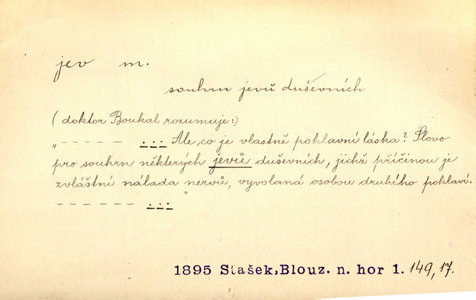 jev m.
souhrn jevů duševních
(doktor Boukal rozumuje:)
„ - - - - - - ... Ale, co je vlastně pohlavní láska? Slovo
pro souhrn některých jevů duševních, jichž příčinou je
zvláštní nálada nervů, vyvolaná osobou druhého pohlaví.
- - - - - - ... "
1895 Stašek, Blouz. n. hor 1. 149, 17.